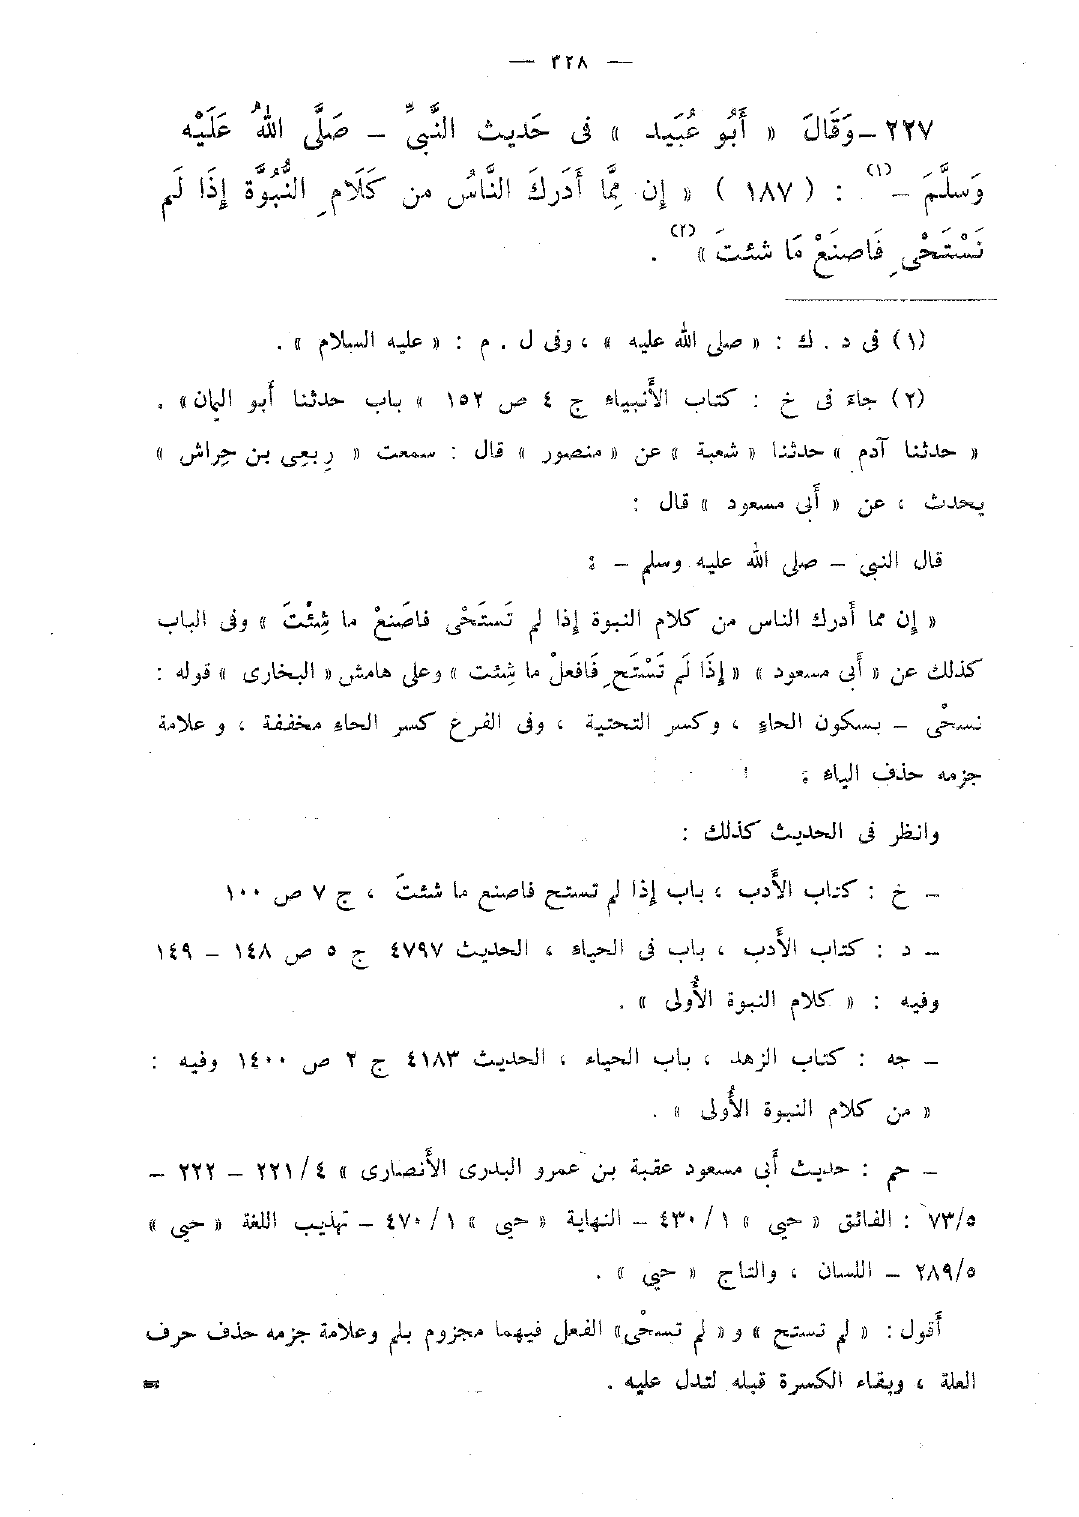 — ٣٢٨ —
٢٢٧ – وَقَالَ « أَبُو عُبَيد » فى حَديث النَّبىِّ – صَلَّى اللهُ عَلَيْه
وَسلَّمَ –(١) : ( ١٨٧ ) « إن مِمَّا أَدَركَ النَّاسُ من كَلَامِ النُّبُوَّة إذَا لَم
تَسْتَحْىِ فَاصنَعْ مَا شئتَ »(٢) .
(١) فى د . ك : « صلى الله عليه » ، وفى ل . م : « عليه السلام » .
(٢) جاءَ فى خ : كتاب الأَنبياء ج ٤ ص ١٥٢ « باب حدثنا أبو اليمان» .
« حدثنا آدم » حدثنا « شعبة » عن « منصور » قال : سمعت « رِبعِى بن حِراش »
يحدث ، عن « أَبى مسعود » قال :
قال النبى – صلى الله عليه وسلم – :
« إن مما أَدرك الناس من كلام النبوة إذا لم تَستَحْى فاصَنعْ ما شِئْتَ » وفى الباب
كذلك عن « أَبى مسعود » « إذَا لَم تَسْتَحِ فَافعلْ ما شِئت » وعلى هامش « البخارى » قوله :
تسحْى – بسكون الحاءِ ، وكسر التحتية ، وفى الفرع كسر الحاءِ مخففة ، و علامة
جزمه حذف الياء :
وانظر فى الحديث كذلك :
– خ : كتاب الأَدب ، باب إذا لم تستح فاصنع ما شئتَ ، ج ٧ ص ١٠٠
– د : كتاب الأَدب ، باب فى الحياء ، الحديث ٤٧٩٧ ج ٥ ص ١٤٨ – ١٤٩
وفيه : « كلام النبوة الأُولى » .
– جه : كتاب الزهد ، باب الحياء ، الحديث ٤١٨٣ ج ٢ ص ١٤٠٠ وفيه :
« من كلام النبوة الأُولى » .
– حم : حديث أَبى مسعود عقبة بن عمرو البدرى الأَنصارى » ٤/٢٢١ – ٢٢٢ –
٥/٧٣ : الفائق « حيي » ١/٤٣٠ – النهاية « حيي » ١/٤٧٠ – تهذيب اللغة « حيي »
٥/٢٨٩ – اللسان ، والتاج « حيي » .
أَقول : « لم تستح » و « لم تسحْى» الفعل فيهما مجزوم بلم وعلامة جزمه حذف حرف
العلة ، وبقاء الكسرة قبله لتدل عليه .
=